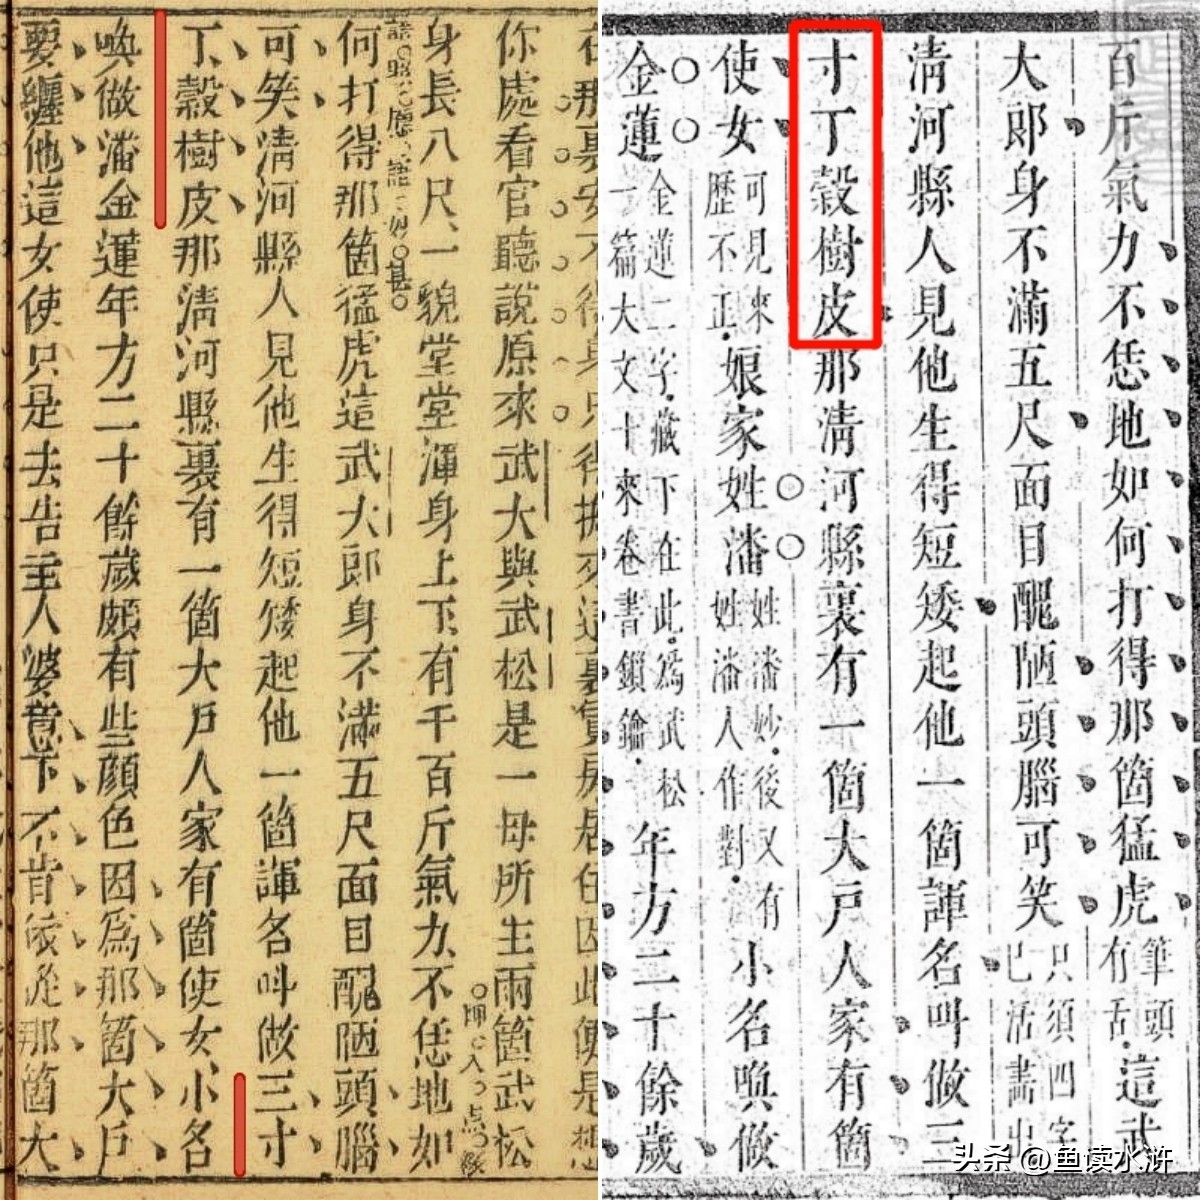 你處看官聽說原來武大與武松是一母所生兩箇武松
身長八尺一貌堂堂渾身上下有千百斤氣力不恁地如
何打得那箇猛虎這武大郎身不滿五尺面目醜陋頭腦
可笑清河縣人見他生得短矮起他一箇諢名叫做三寸
丁穀樹皮那清河縣裏有一箇大戶人家有箇使女小名
喚做潘金蓮年方二十餘歲頗有些顏色因爲那箇大戶
要纏他這女使只是去告主人婆意下不肯依從那箇大
百斤氣力不恁地如何打得那箇猛虎筆頭有舌這武
大郎身不滿五尺面目醜陋頭腦可笑只須四字已活畫出
清河縣人見他生得短矮起他一箇諢名叫做三
寸丁穀樹皮那清河縣裏有一箇大戶人家有箇
使女可見來歷不正娘家姓潘姓潘妙後又有姓潘人作對小名喚做
金蓮金蓮二字藏下在此爲武松一篇大文十來卷書鎖鑰年方二十餘歲
头条 @鱼读水浒